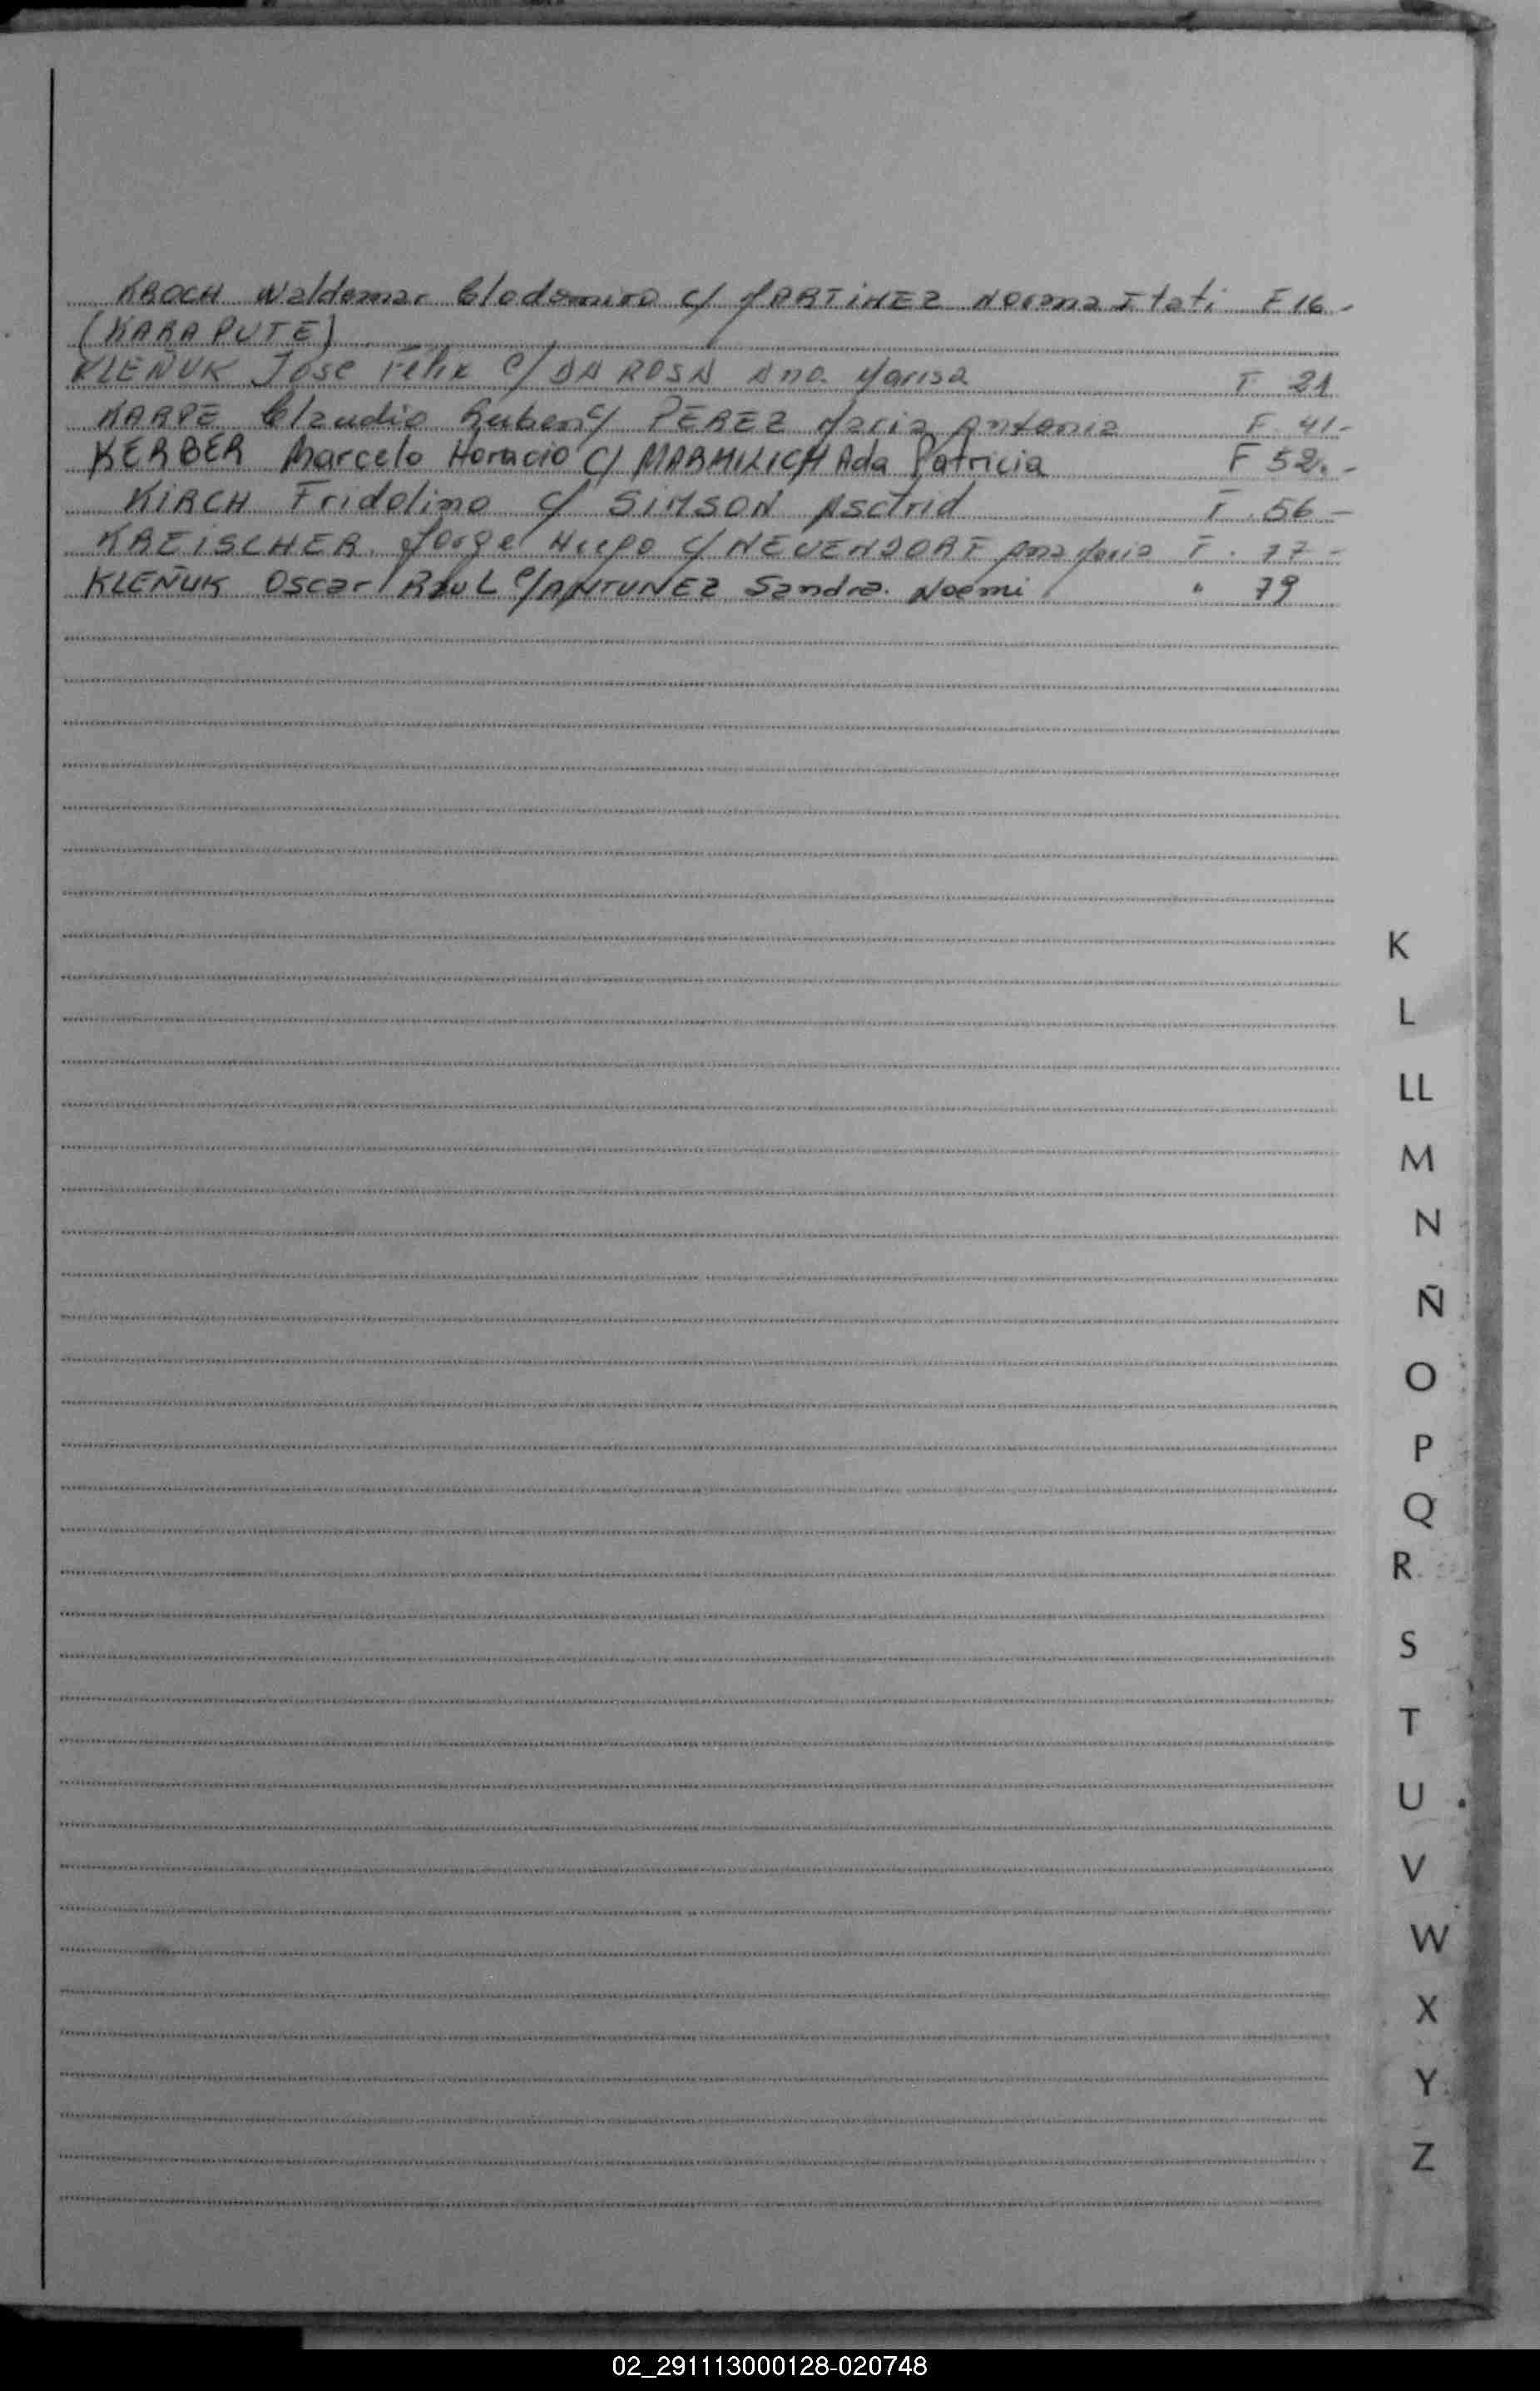 KROCH Waldemar Clodomiro c/ MARTINEZ Norma Itati F 16 -
(KARAPUTE)
KLEÑUK Jose Felix c/ DA ROSA Ana Marisa F 21
KARPE Claudio Ruben c/ PEREZ Maria Antonia F. 41 -
KERBER Marcelo Horacio c/ MARMILICH Ada Patricia F 52. -
KIRCH Fridolino c/ SIMSON Asctrid F. 56 -
KREISCHER Jorge Hugo c/ NEUENDORF Ana Maria F. 77 -
KLEÑUK Oscar RauL c/ ANTUNEZ Sandra Noemi " 79
K
L
LL
M
N
Ñ
O
P
Q
R
S
T
U
V
W
X
Y
Z
02_291113000128-020748